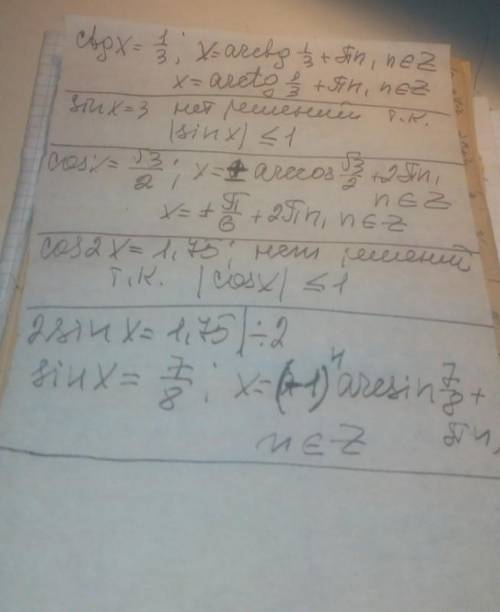 ctgx = 1/3; x = arcctg 1/3 + πn, n∈Z
x = arcctg 1/3 + πn, n∈Z
sinx=3 нет решений т.к.
|sinx| ≤ 1
cosx = √3/2; x = ± arccos √3/2 + 2πn,
n∈Z
x = ± π/6 + 2πn, n∈Z
cos2x = 1,75; нет решений
т.к. |cosx| ≤ 1
2sinx = 1,75 | ÷2
sinx = 7/8; x = (-1)ⁿ arcsin 7/8 +
πn,
n∈Z